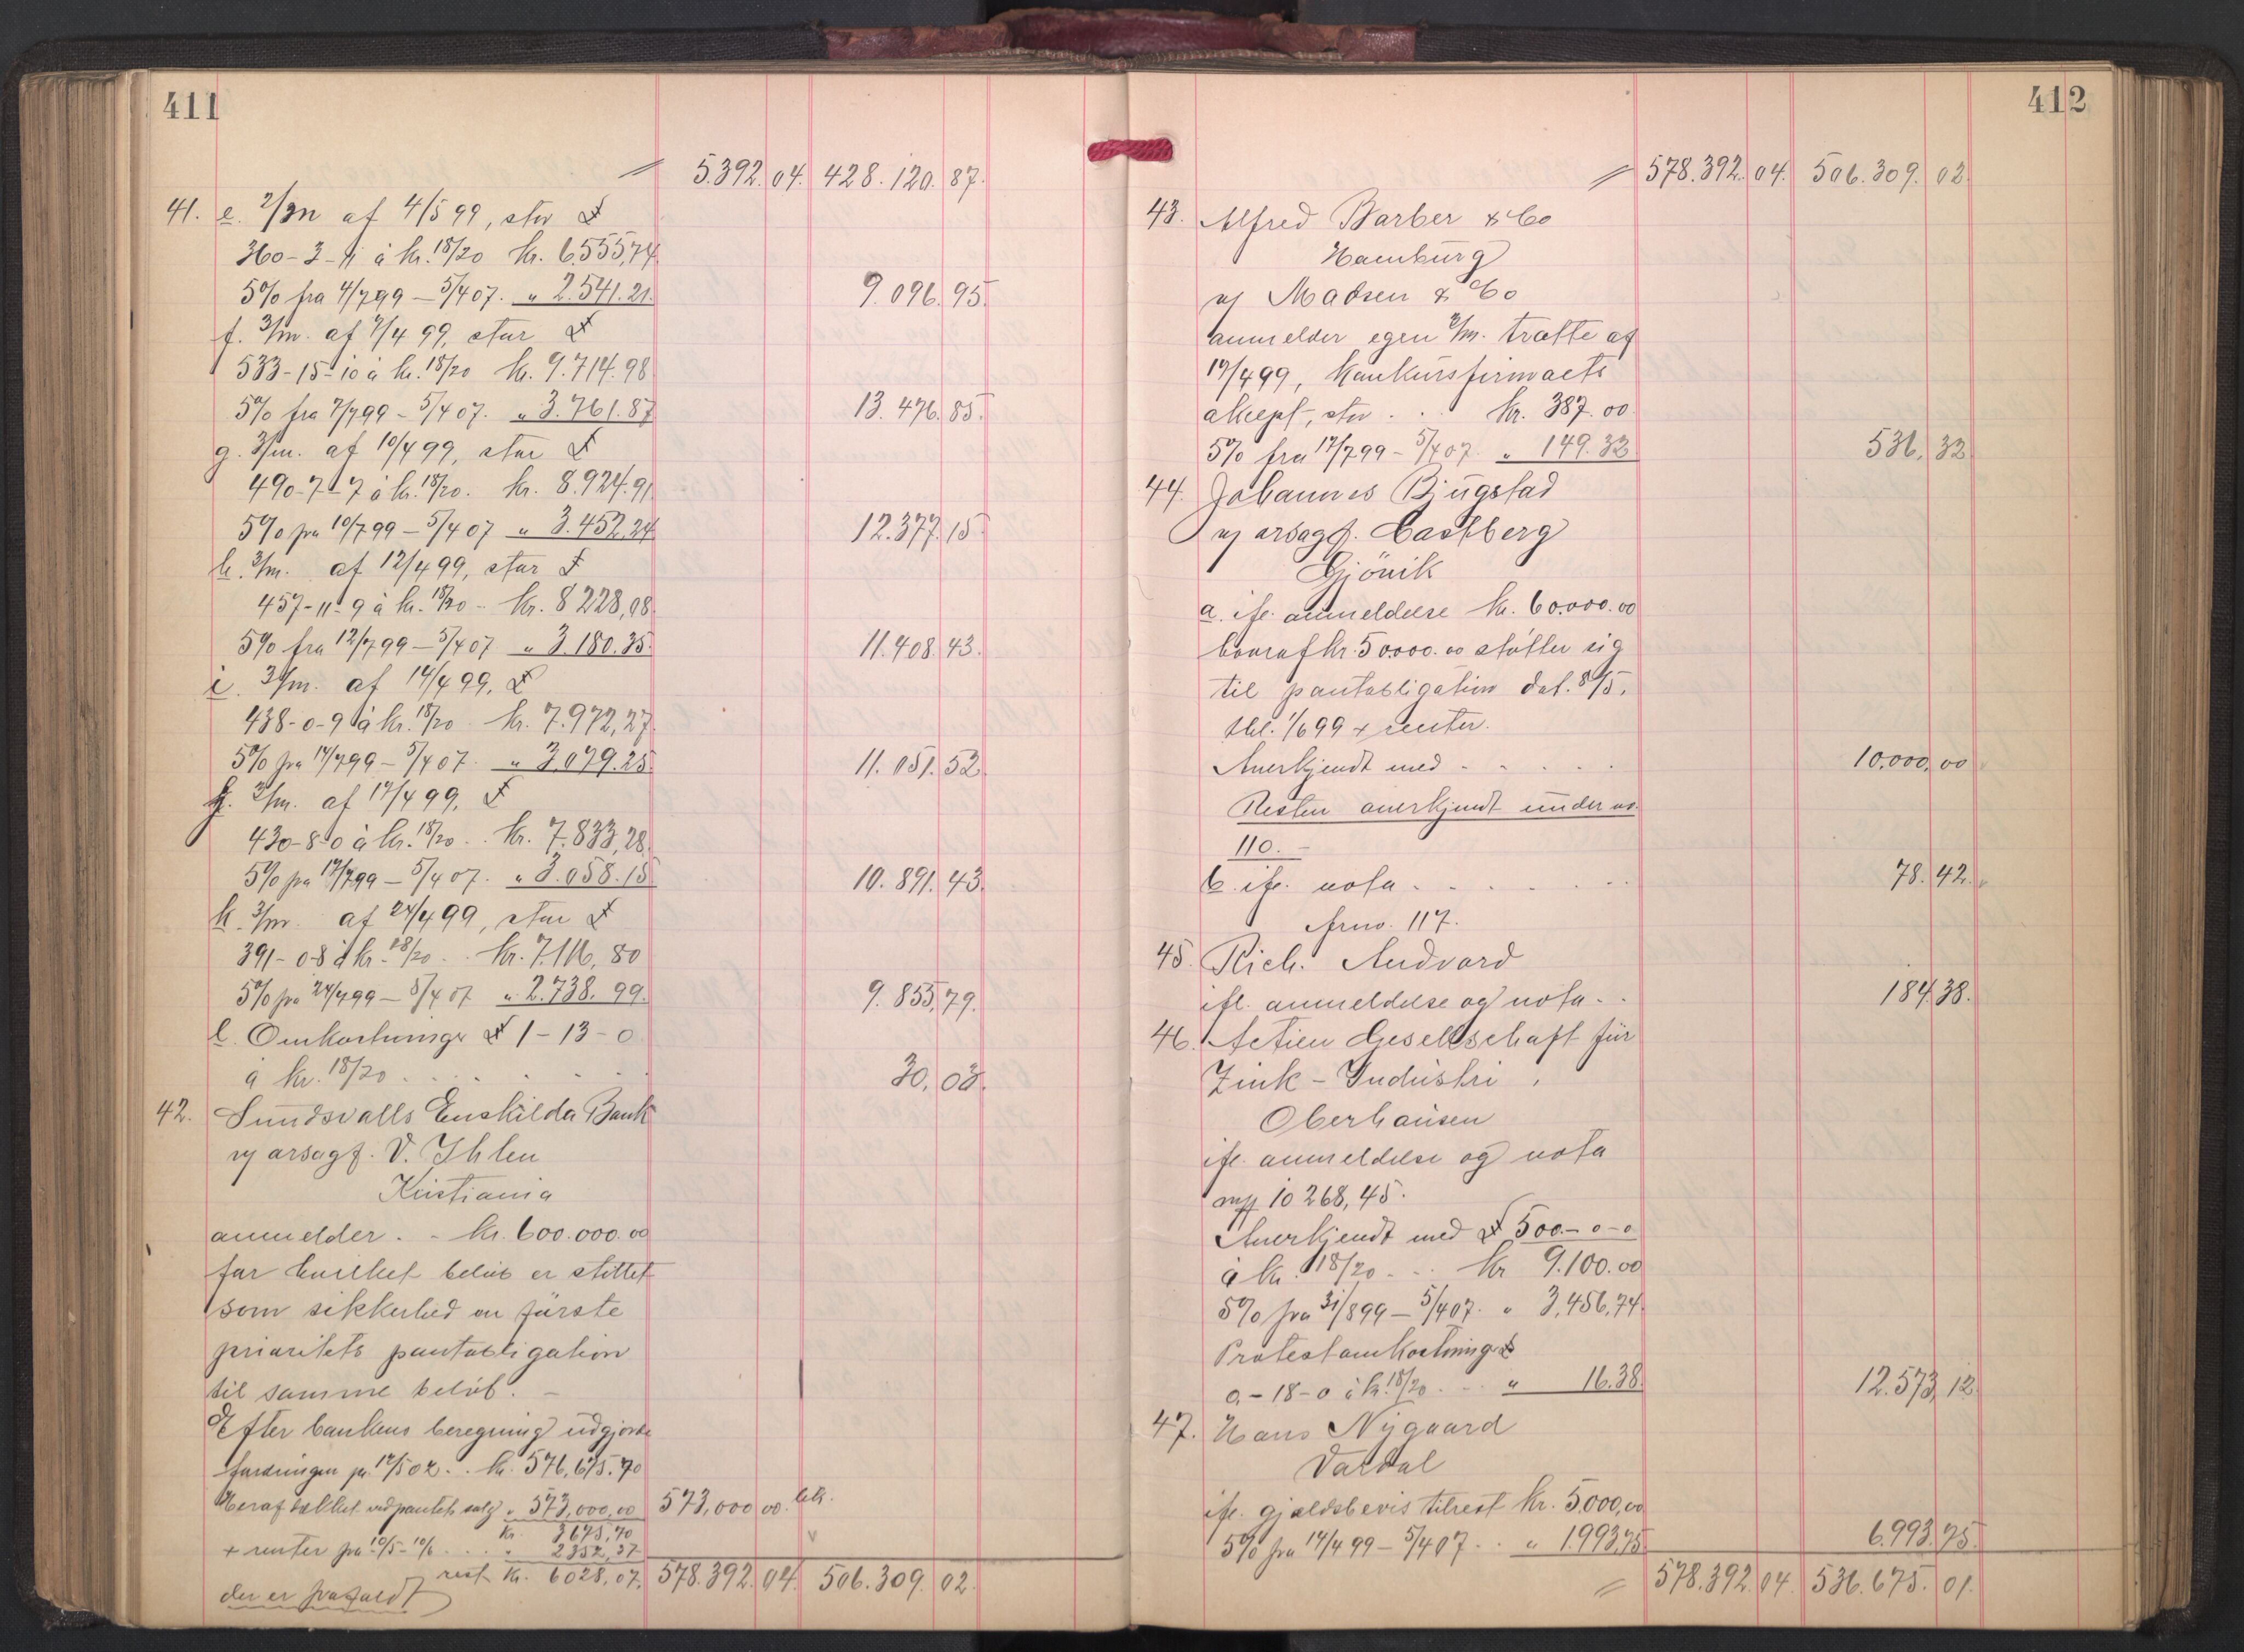 411
5.392.04. 428.120.87.
41. e. 2/m af 4/5 99, stor £
360-3-11 à kr. 18/20 kr. 6.555,74
5% fra 4/7 99 - 5/4 07. " 2.541.21. 9.096.95.
f. 3/m. af 7/4 99, stor £
533-15-10 à kr. 18/20 kr. 9.714.98
5% fra 7/7 99 - 5/4 07. " 3.761.87 13.476.85.
g. 3/m. af 10/4 99, stor £
490-7-7 à kr. 18/20. kr. 8.924.91
5% fra 10/7 99 - 5/4 07 " 3.452.24 12.377.15.
h. 3/m. af 12/4 99, stor £
457-11-9 à kr. 18/20 - kr. 8228,08
5% fra 12/7 99 - 5/4 07 " 3.180.35. 11.408.43.
i. 3/m. af 14/4 99, £
438-0-9 à kr. 18/20 - kr. 7.972,27
5% fra 14/7 99 - 5/4 07. " 3.079.25. 11.051.52.
j. 3/m. af 17/4 99, £
430-8-0 à kr. 18/20 . . kr. 7.833,28.
5% fra 17/7 99 - 5/4 07. " 3.058.15 10.891.43.
k. 3/m. af 24/4 99, stor £
391-0-8 à kr. 18/20 . . kr. 7.116,80
5% fra 24/7 99 - 5/4 07 " 2.738.99. 9.855,79.
l. Omkostninger £ 1-13-0
à kr. 18/20 . . . . . . 30,03.
42. Sundsvalls Enskilda Bank
v/ orsagf. V. Ihlen
Kristiania
anmelder . - kr. 600.000.00
for hvilket belöb er stillet
som sikkerhed en förste
prioritets pantobligation
til samme belöb. -
Efter bankens beregning udgjorde
fordringen pr. 12/5 02. . . kr. 576,675.70
Heraf dækket ved pantets salg " 573,000,00 573,000 00.
kr. 3675,70
+ renter fra 10/5 - 10/6 . . . " 2352,37
rest kr. 6028,07. 578.392.04. 506.309.02.
der er frafaldt
412
578.392.04. 506.309.02.
43. Alfred Barber & Co
Hamburg
v/ Madsen & Co
anmelder egen 3/m. tratte af
17/4 99, konkursfirmaets
akcept, stor . . . kr. 387.00
5% fra 17/7 99 - 5/4 07. " 149.32 536,32
44. Johannes Bjugstad
v/ orsagf. Castberg
Gjövik
a. ifl. anmeldelse kr. 60.000.00
hvoraf kr. 50.000.00 støtter sig
til pantobligation dat. 8/5,
tbl. 1/6 99 + renter.
Anerkjendt med - - . . . 10.000,00
Resten anerkjendt under no.
110. -
b. ifl. nota . . . . . . . 78.42.
frno. 117.
45. Rich. Andvord
ifl. anmeldelse og nota . . 184.38.
46. Actien Gesellschaft für
Zink-Industri,
Oberhausen
ifl. anmeldelse og nota
10268,45.
Anerkjendt med £ 500-0-0
à kr. 18/20 . . . kr 9.100.00
5% fra 31/8 99 - 5/4 07. " 3,456,74.
Protestomkostninger £
0-18-0 à kr. 18/20 . . . " 16.38. 12.573,12
47. Hans Nygaard
Vardal
ifl. gjældsbevis tilrest kr. 5.000,00
5% fra 14/4 99 - 5/4 07 . . " 1.993,75 6.993.75.
578.392.04. 536.675.01.